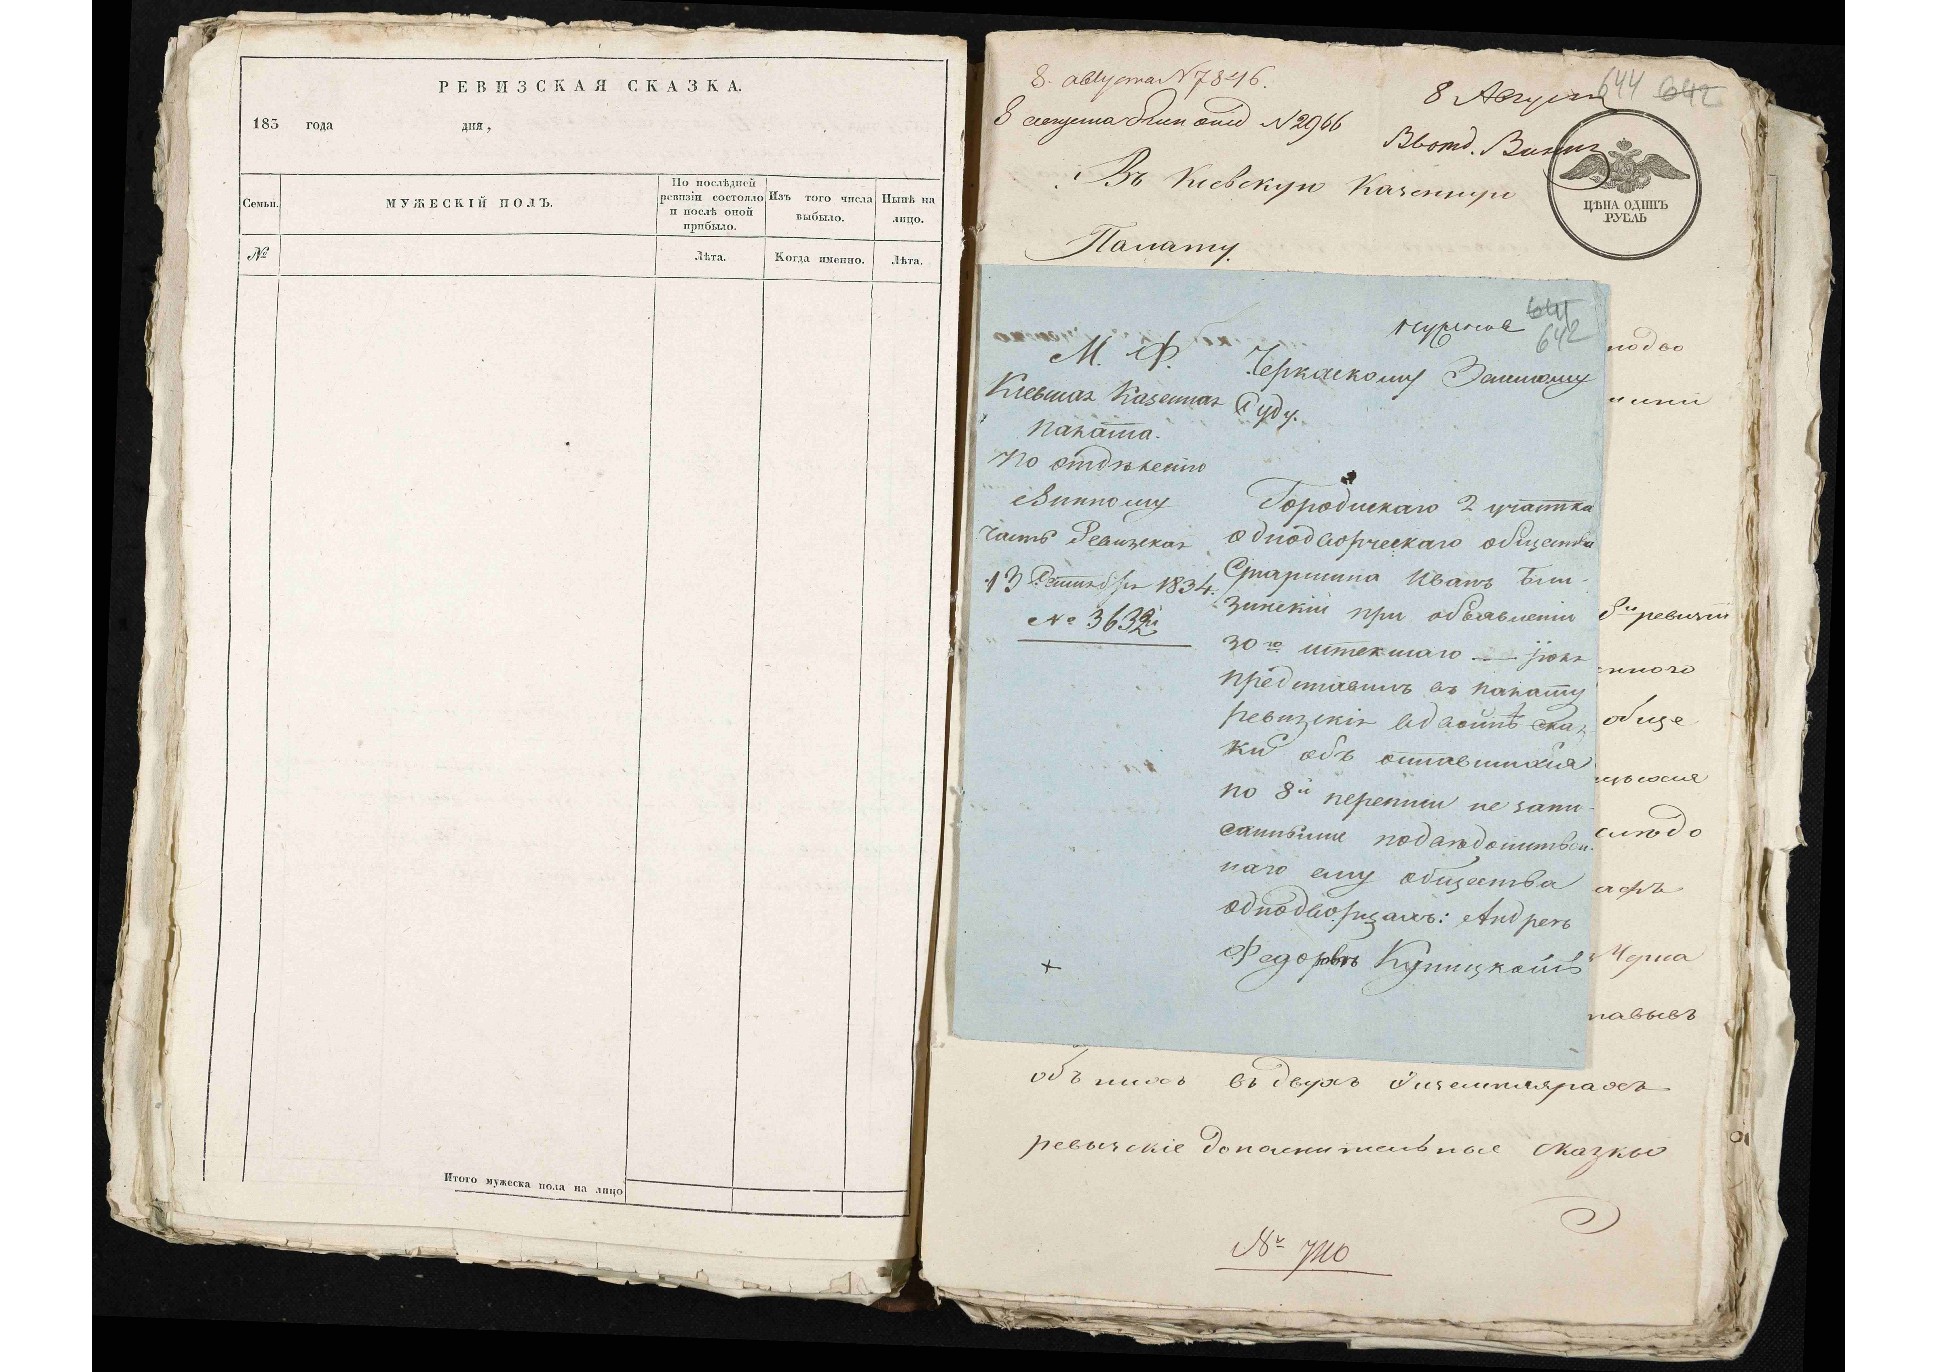 РЕВИЗСКАЯ СКАЗКА.
183 года дня,
Семьи.
МУЖЕСКІЙ ПОЛЪ.
По послѣдней
ревизіи состояло
и послѣ оной
прибыло.
Изъ того числа
выбыло.
Нынѣ на
лицо.
№
Лѣта.
Когда именно.
Лѣта.
Итого мужеска пола на лицо
8 августа N 7846.
8 августа N 2966
8 Августа
644 642
Въ Кіевскую Казенную
Палату.
ЦѢНА ОДИНЪ
РУБЛЬ
641
642
М. Ф.
Кіевская Казенная
Палата.
По отдѣленію
Винному
Часть Ревизская
13 Сентября 1834.
№ 3632
Черкаскому Земскому
Суду.
Городискаго 2 участка
однодворческаго общества
Старшина Иванъ
при объявленіи
30го истекшаго
представилъ въ палату
ревизскія сказ
ки объ оставшихся
по 8й переписи не запи
санными подвѣдомствен
наго ему общества
однодворцахъ: Андрея
Федоровъ Куницкомъ
подво
8й ревизіи
обще
слѣдо
въ двухъ экземплярахъ
ревизскіе дополнительные сказки
№ 710